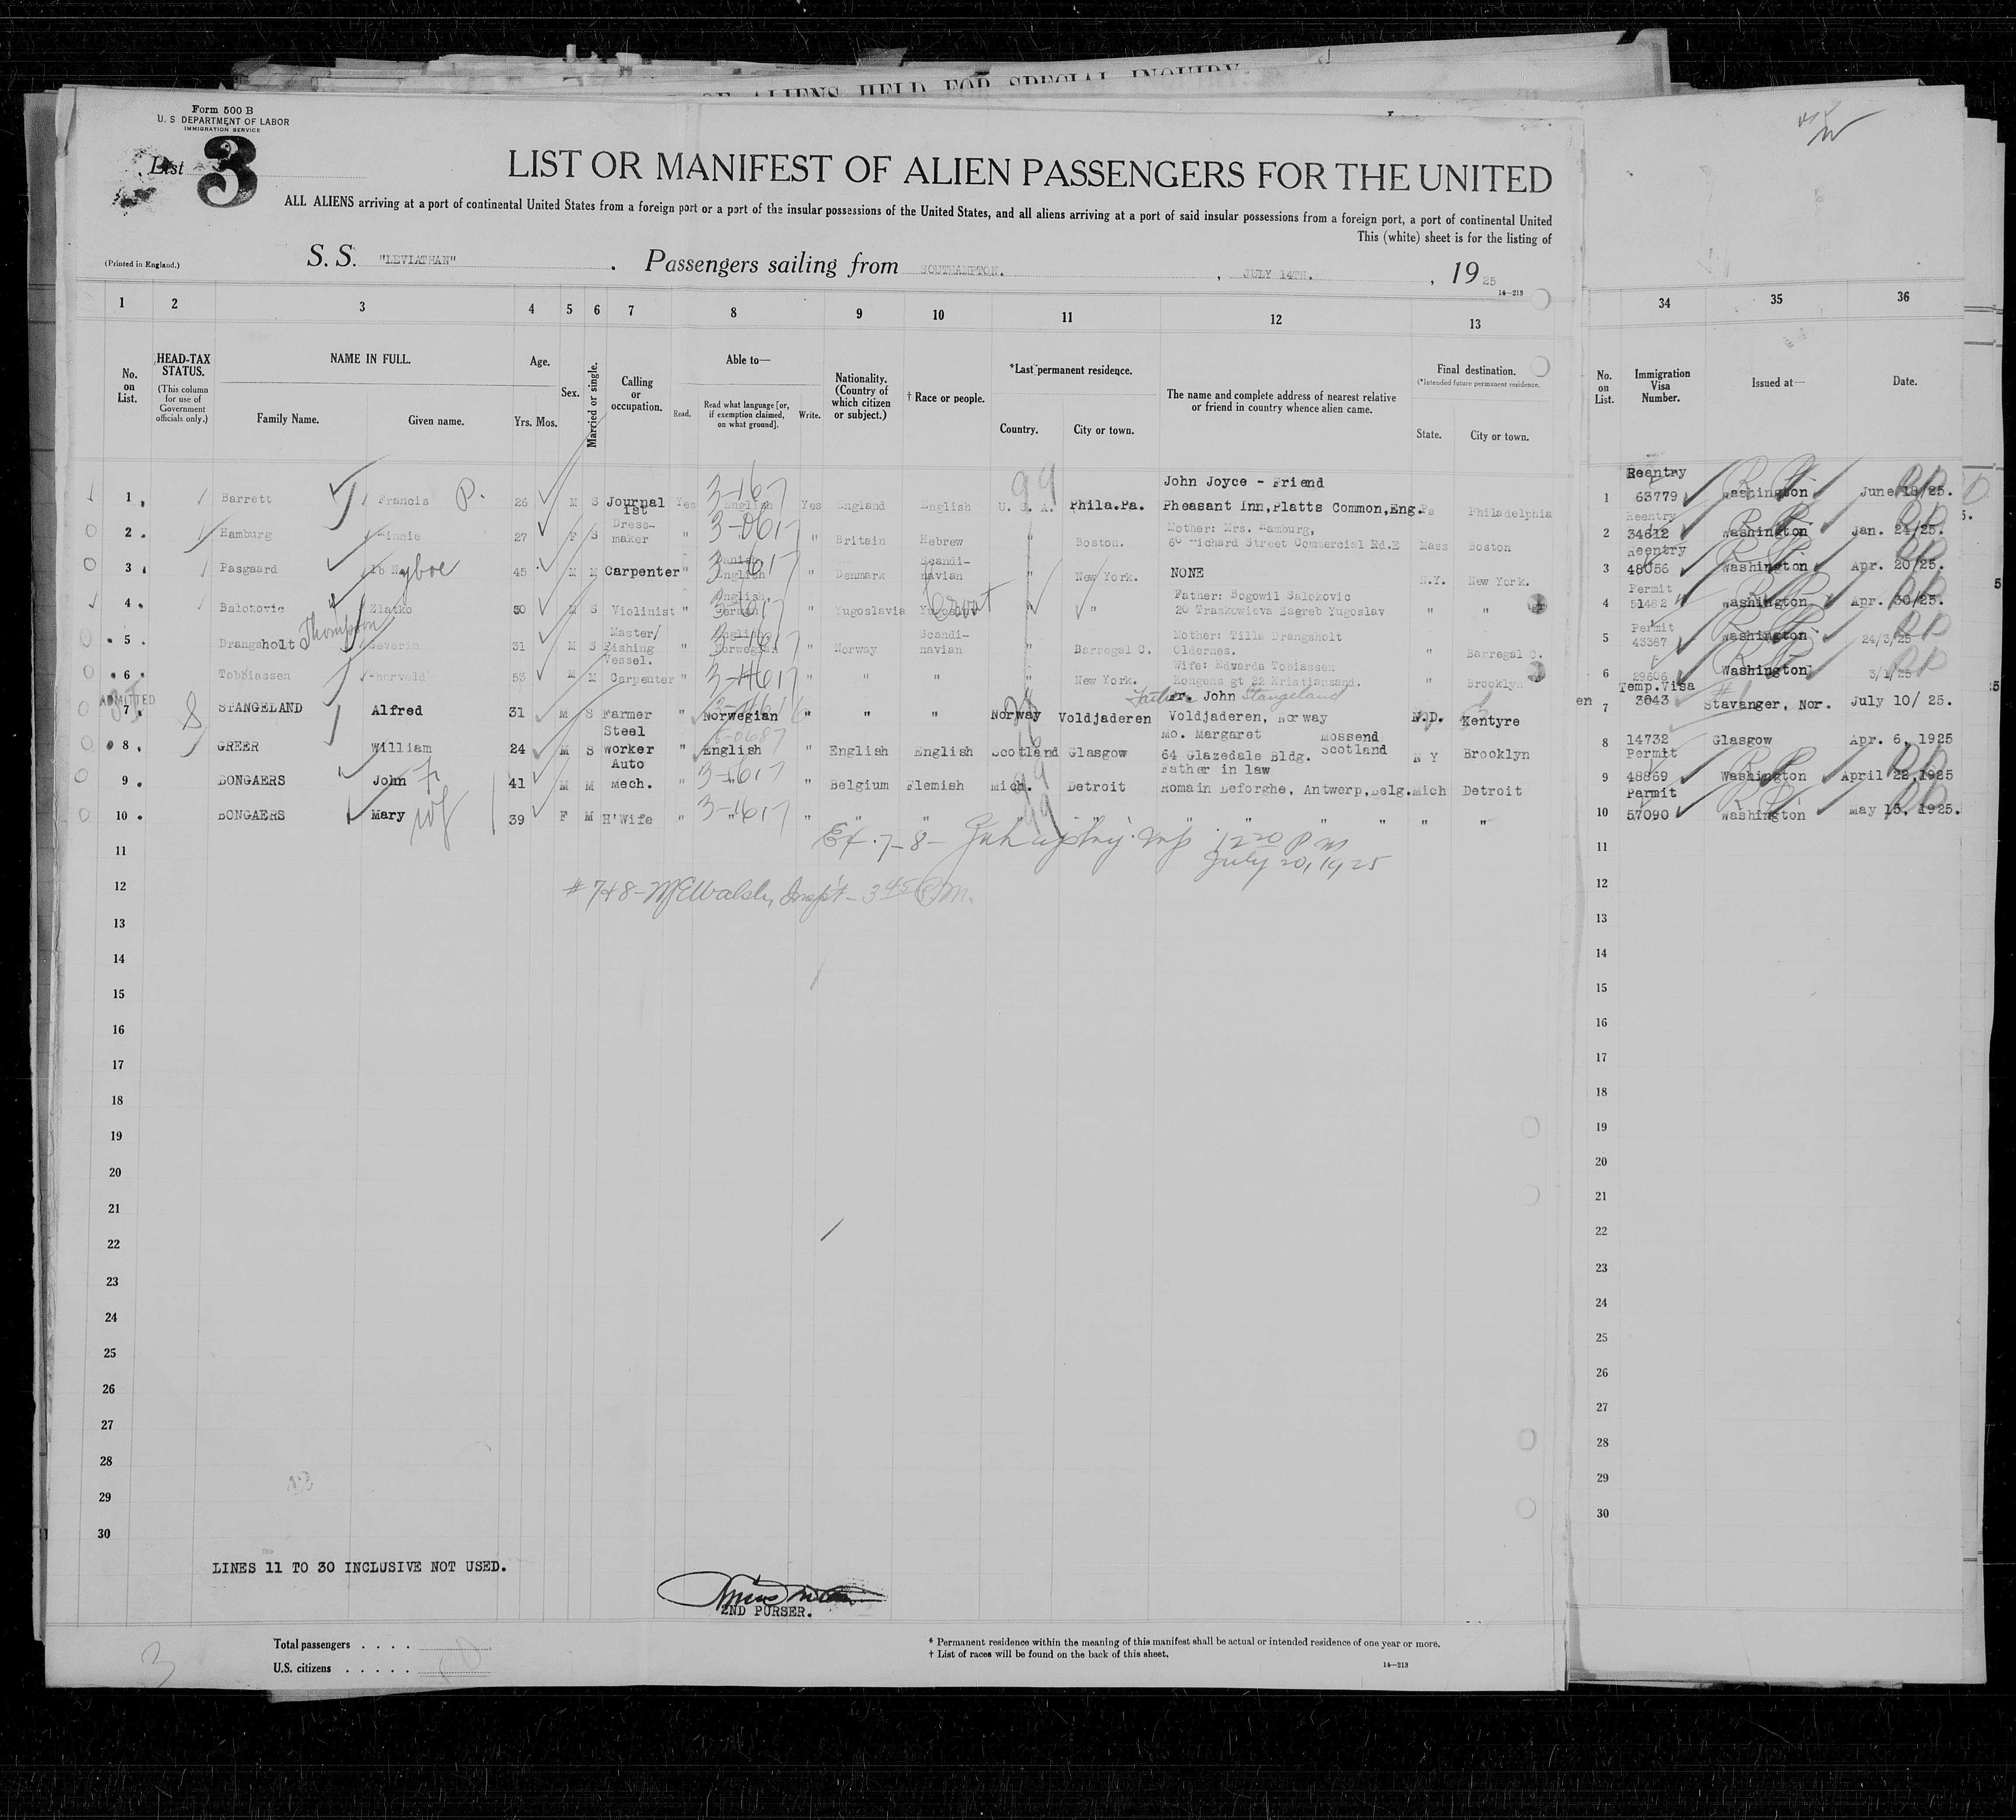 OF ALIENS HELD FOR SPECIAL INQUIRY
Form 500 B
U. S DEPARTMENT OF LABOR
IMMIGRATION SERVICE
List 3
LIST OR MANIFEST OF ALIEN PASSENGERS FOR THE UNITED
ALL ALIENS arriving at a port of continental United States from a foreign port or a port of the insular possessions of the United States, and all aliens arriving at a port of said insular possessions from a foreign port, a port of continental United
This (white) sheet is for the listing of
(Printed in England.)
S. S. "LEVIATHAN" . Passengers sailing from SOUTHAMPTON. , JULY 14TH. , 1925
14—213
1 2 3 4 5 6 7 8 9 10 11 12 13 34 35 36
No. on List.
HEAD-TAX STATUS.
(This column for use of Government officials only.)
NAME IN FULL.
Family Name. Given name.
Age.
Yrs. Mos.
Sex.
Married or single.
Calling or occupation.
Able to—
Read. Read what language [or, if exemption claimed, on what ground]. Write.
Nationality. (Country of which citizen or subject.)
† Race or people.
*Last permanent residence.
Country. City or town.
The name and complete address of nearest relative or friend in country whence alien came.
Final destination.
(*Intended future permanent residence.
State. City or town.
No. on List.
Immigration Visa Number.
Issued at—
Date.
John Joyce - Friend Reentry
1 Barrett Francis P. 26 M S Journalist Yes English Yes England English U. S. A. Phila.Pa. Pheasant Inn,Platts Common,Eng. Pa Philadelphia 1 63779 Washington June/18/25.
Mother: Mrs. Hamburg, Reentry
2 Hamburg Minnie 27 F S Dress-maker " " Britain Hebrew " Boston. Richard Street Commercial Rd.E Mass Boston 2 34612 Washington Jan. 24/25.
Reentry
3 Pasgaard Nyboe 45 M M Carpenter " Danish English " Denmark Scandinavian " New York. NONE N.Y. New York. 3 48056 Washington Apr. 20/25.
Father: Bogowil Salokovic Permit
4 Balokovic Zlatko 30 M S Violinist " English, German " Yugoslavia Yugoslav Croat " " 20 Traskowieva Zagreb Yugoslav " " 4 51482 Washington Apr. 30/25.
Mother: Tilla Drangsholt Permit
5 Drangsholt Thompson Severin 31 M S Master/Fishing Vessel. " English Norwegian " Norway Scandinavian " Barregal C. Oldernes. " Barregal C. 5 43387 Washington 24/3/25
Wife: Edvarda Tobiassen
6 Tobiassen Thorvald 53 M M Carpenter " " " " " New York. Kongens gt 22 Kristianzand. " Brooklyn 6 29606 Washington 3/1/25
ADMITTED Father Fr. John Stangeland Temp.Visa
7 STANGELAND Alfred 31 M S Farmer " Norwegian " " " Norway Voldjaderen Voldjaderen, Norway N.D. Kentyre 7 3043 Stavanger, Nor. July 10/ 25.
Mo. Margaret Mossend
8 GREER William 24 M S Steel worker " English " English English Scotland Glasgow 64 Glazedale Bldg. Scotland N Y Brooklyn 8 14732 Glasgow Apr. 6, 1925
Father in law Permit
9 BONGAERS John F. 41 M M Auto Mech. " " " Belgium Flemish Mich. Detroit Romain Deforghe, Antwerp,Belg. Mich Detroit 9 48869 Washington April 22,1925
Permit
10 BONGAERS Mary wf 39 F M H'Wife " " " " " " " " " " " " 10 57090 Washington May 15, 1925.
12 20 P m
July 20, 1925
# 7 & 8 - McWalsh, Insp't - 3 45 P.M.
11
12
13
14
15
16
17
18
19
20
21
22
23
24
25
26
27
28
29
30
LINES 11 TO 30 INCLUSIVE NOT USED.
2ND PURSER.
Total passengers . . . .
U.S. citizens . . . . . 10
3
* Permanent residence within the meaning of this manifest shall be actual or intended residence of one year or more.
† List of races will be found on the back of this sheet.
14—213